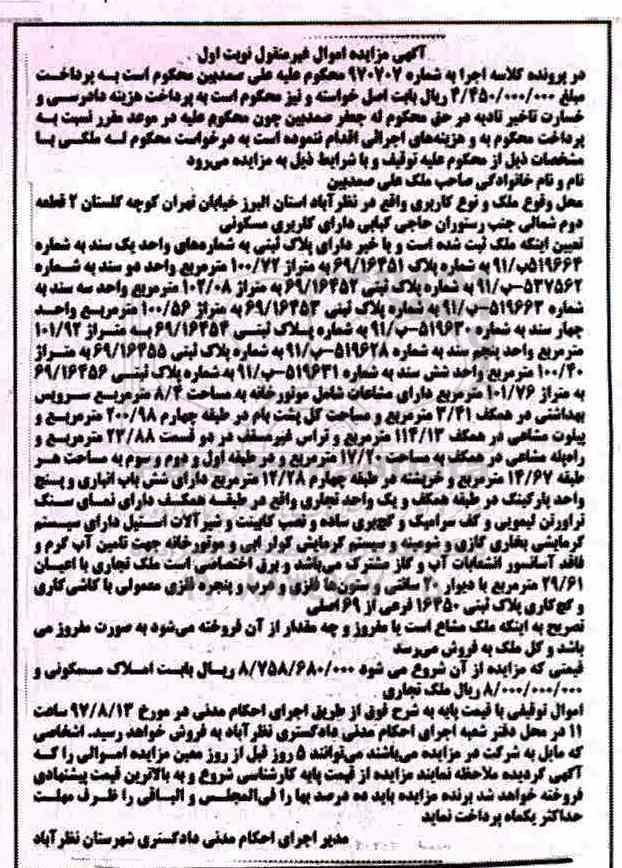 آگهی مزایده اموال غیرمنقول نوبت اول
در پرونده کلاسه اجرا به شماره ۹۷۰۷۰۷ محکوم علیه علی صمدبین محکوم است به پرداخت
مبلغ ۴/۴۵۰/۰۰۰/۰۰۰ ریال بابت اصل خواسته و نیز محکوم است به پرداخت هزینه دادرسی و
خسارت تاخیر تادیه در حق محکوم له جعفر صمدبین چون محکوم علیه در موعد مقرر نسبت به
پرداخت محکوم به و هزینه‌های اجرائی اقدام ننموده است به درخواست محکوم له ملکی با
مشخصات ذیل از محکوم علیه توقیف و با شرایط ذیل به مزایده می‌رود
نام و نام خانوادگی صاحب ملک علی صمدبین
محل وقوع ملک و نوع کاربری واقع در نظرآباد استان البرز خیابان تهران کوچه گلستان ۲ قطعه
دوم شمالی جنب رستوران حاجی کبابی دارای کاربری مسکونی
تعیین اینکه ملک ثبت شده است و یا خیر دارای پلاک ثبتی به شماره‌های واحد یک سند به شماره
۵۱۹۶۶۴ب/۹۱ به شماره پلاک ۶۹/۱۶۴۵۱ به متراژ ۱۰۰/۷۲ مترمربع واحد دو سند به شماره
۵۳۷۵۶۲-ب/۹۱ به شماره پلاک ثبتی ۶۹/۱۶۴۵۲ به متراژ ۱۰۲/۰۸ مترمربع واحد سه سند به
شماره ۵۱۹۶۶۲-ب/۹۱ به شماره پلاک ثبتی ۶۹/۱۶۴۵۳ به متراژ ۱۰۰/۵۶ مترمربع واحد
چهار سند به شماره ۵۱۹۶۳۰-ب/۹۱ به شماره پلاک ثبتی ۶۹/۱۶۴۵۴ به متراژ ۱۰۱/۹۲
مترمربع واحد پنجم سند به شماره ۵۱۹۶۲۸-ب/۹۱ به شماره پلاک ثبتی ۶۹/۱۶۴۵۵ به متراژ
۱۰۰/۴۰ مترمربع واحد شش سند به شماره ۵۱۹۶۳۱-ب/۹۱ به شماره پلاک ثبتی ۶۹/۱۶۴۵۶
به متراژ ۱۰۱/۷۶ مترمربع دارای مشاعات شامل موتور خانه به مساحت ۸/۴ مترمربع سرویس
بهداشتی در همکف ۳/۴۱ مترمربع و مساحت کل پشت بام در طبقه چهارم ۲۰۰/۹۸ مترمربع و
پیلوت مشاعی در همکف ۱۱۴/۱۳ مترمربع و تراس غیرمسقف در دو قسمت ۲۳/۸۸ مترمربع و
راه‌پله مشاعی در همکف به مساحت ۱۷/۲۰ مترمربع و در طبقه اول و دوم و سوم به مساحت هر
طبقه ۱۴/۶۷ مترمربع و خرپشته در طبقه چهارم ۱۲/۲۸ مترمربع دارای شش باب انباری و پنج
واحد پارکینگ در طبقه همکف و یک واحد تجاری واقع در طبقه همکف دارای نمای سنگ
تراورتن لیمویی و کف سرامیک و گچبری ساده و نصب کابینت و شیرآلات استیل دارای سیستم
گرمایشی بخاری گازی و شومینه و سیستم گرمایش کولر ابی و موتور خانه جهت تامین آب گرم و
فاقد آسانسور انشعابات آب و گاز مشترک می‌باشد و برق اختصاصی است ملک تجاری با اعیان
۲۹/۶۱ مترمربع با دیوار ۲۰ سانتی و ستون‌ها فلزی و درب و پنجره فلزی معمولی با کاشی‌کاری
و گچ‌کاری پلاک ثبتی ۱۶۴۵۰ فرعی از ۶۹ اصلی
تصریح به اینکه ملک مشاع است یا مفروز و چه مقدار از آن فروخته می‌شود به صورت مفروز می
باشد و کل ملک به فروش می‌رسد
قیمتی که مزایده از آن شروع می شود ۸/۷۵۸/۶۸۰/۰۰۰ ریال بابت املاک مسکونی و
۸/۰۰۰/۰۰۰/۰۰۰ ریال ملک تجاری
اموال توقیفی با قیمت پایه به شرح فوق از طریق اجرای احکام مدنی در مورخ ۹۷/۸/۱۳ ساعت
۱۱ در محل دفتر شعبه اجرای احکام مدنی دادگستری نظرآباد به فروش خواهد رسید. اشخاصی
که مایل به شرکت در مزایده می‌باشند می‌توانند ۵ روز قبل از روز معین مزایده اموالی را که
آگهی گردیده ملاحظه نمایند مزایده از قیمت پایه کارشناسی شروع و به بالاترین قیمت پیشنهادی
فروخته خواهد شد برنده مزایده باید ده درصد بها را فی‌المجلس و الباقی را ظرف مهلت
حداکثر یکماه پرداخت نماید
مدیر اجرای احکام مدنی دادگستری شهرستان نظرآباد